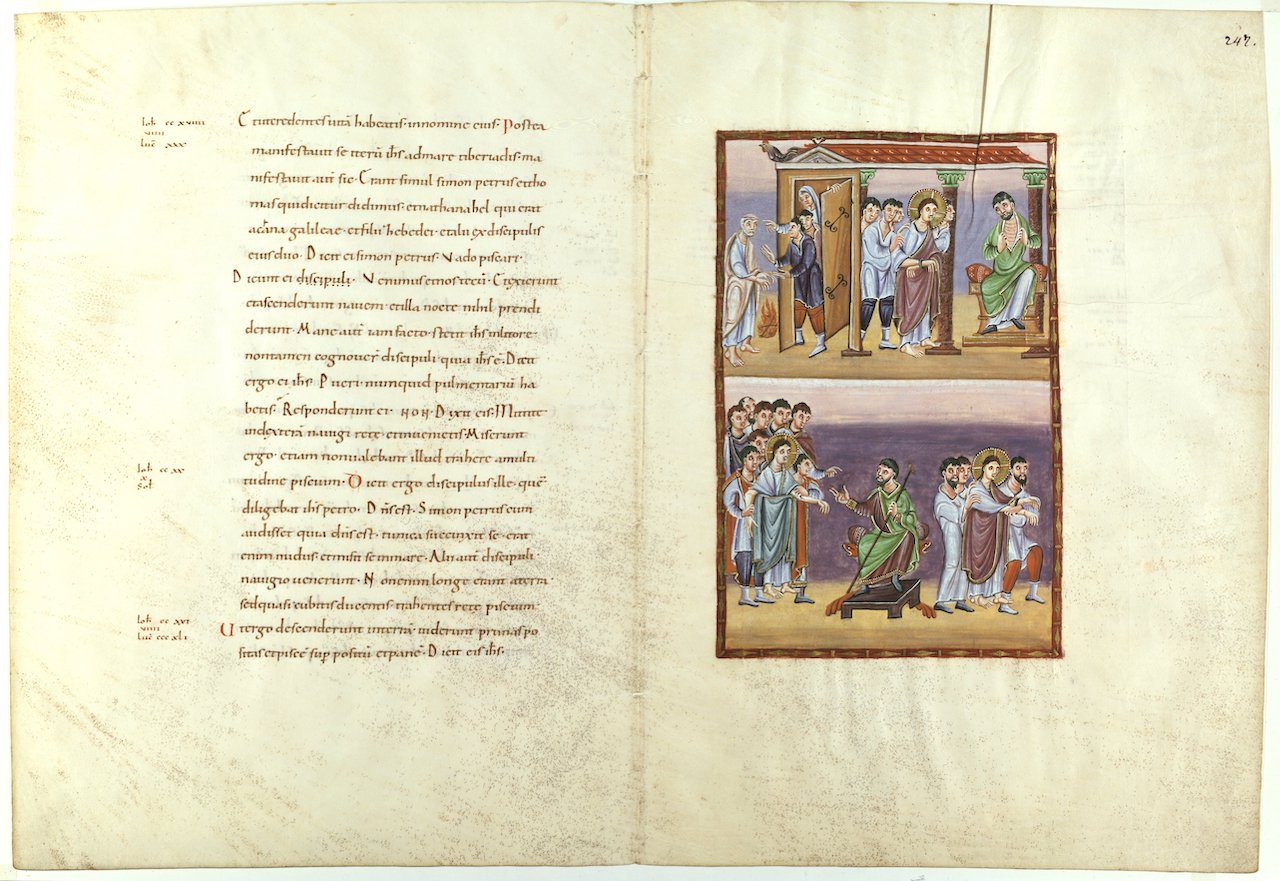 Ioh cc xviiii
viiii
Luc xxx
Et ut credentes uitā habeatis · in nomine eius · Postea
manifestauit se iterū ihs ad mare tiberiadis · ma
nifestauit autē sic · Erant simul simon petrus et tho
mas qui dicitur didimus · et nathanahel qui erat
a cāna galileae · et filii zebedei · et alii ex discipulis
eius duo · Dicit ei simon petrus · Vado piscari ·
Dicunt ei discipuli · Venimus et nos tecū · Et exierunt
et ascenderunt nauem · et illa nocte nihil prendi
derunt · Mane autē iam facto · stetit ihs in litore ·
non tamen cognouer̄ discipuli · quia ihs ē · Dicit
ergo ei ihs · Pueri · nunquid pulmentariū ha
betis · Responderunt ei · NON · Dixit eis · Mittite
in dexterā nauigi rete · et inuenietis · Miserunt
ergo · et iam non ualebant illud trahere a multi
tudine piscium · Dicit ergo discipulus ille · quē
diligebat ihs petro · Dn̄s est · Simon petrus cum
audisset quia dn̄s est · tunica succinxit se · erat
enim nudus · et misit se in mare · Alii autē discipuli
nauigio uenerunt · Non enim longe erant a terra
sed quasi cubitis ducentis · trahentes rete piscium
Ut ergo descenderunt in terrā · uiderunt prunas po
sitas et piscē sup positū et panē · Dicit eis ihs ·
Ioh cc xx
x
Sol
Ioh cc xxi
viiii
Luc ccc xli
247.